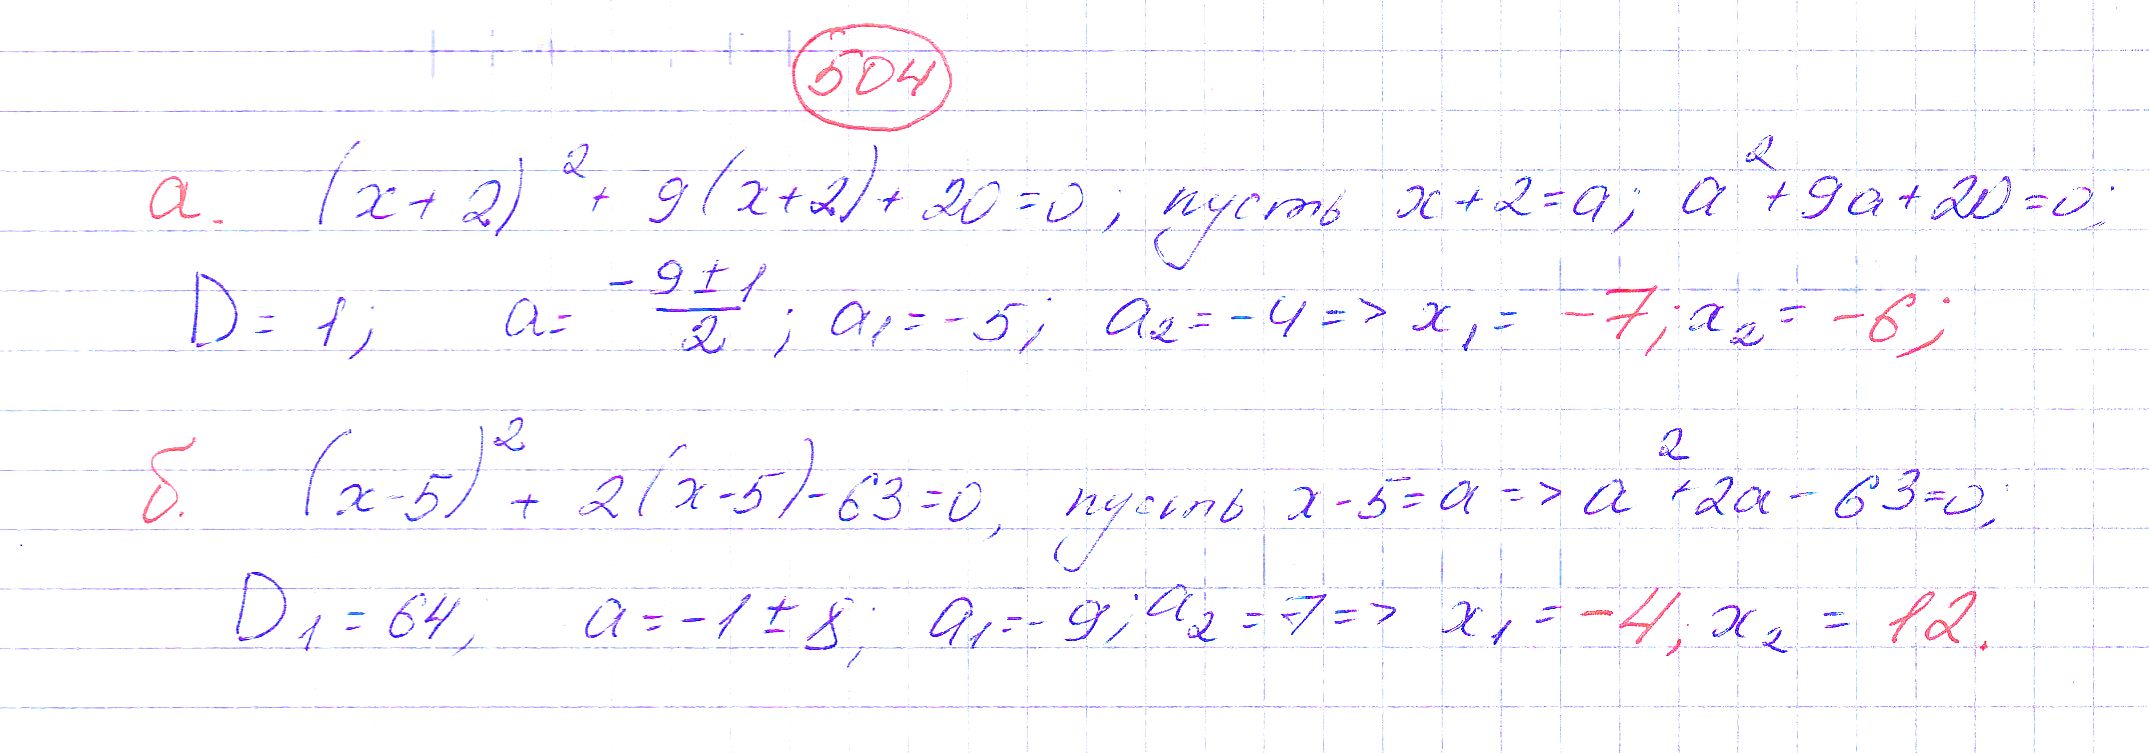 504
а. (x+2)² + 9(x+2) + 20 = 0; пусть x+2=a; a²+9a+20=0;
D = 1; a = (-9±1)/2; a₁ = -5; a₂ = -4 => x₁ = -7; x₂ = -6;
б. (x-5)² + 2(x-5) - 63 = 0, пусть x-5=a => a²+2a-63=0;
D₁ = 64; a = -1 ± 8; a₁ = -9; a₂ = 7 => x₁ = -4; x₂ = 12.